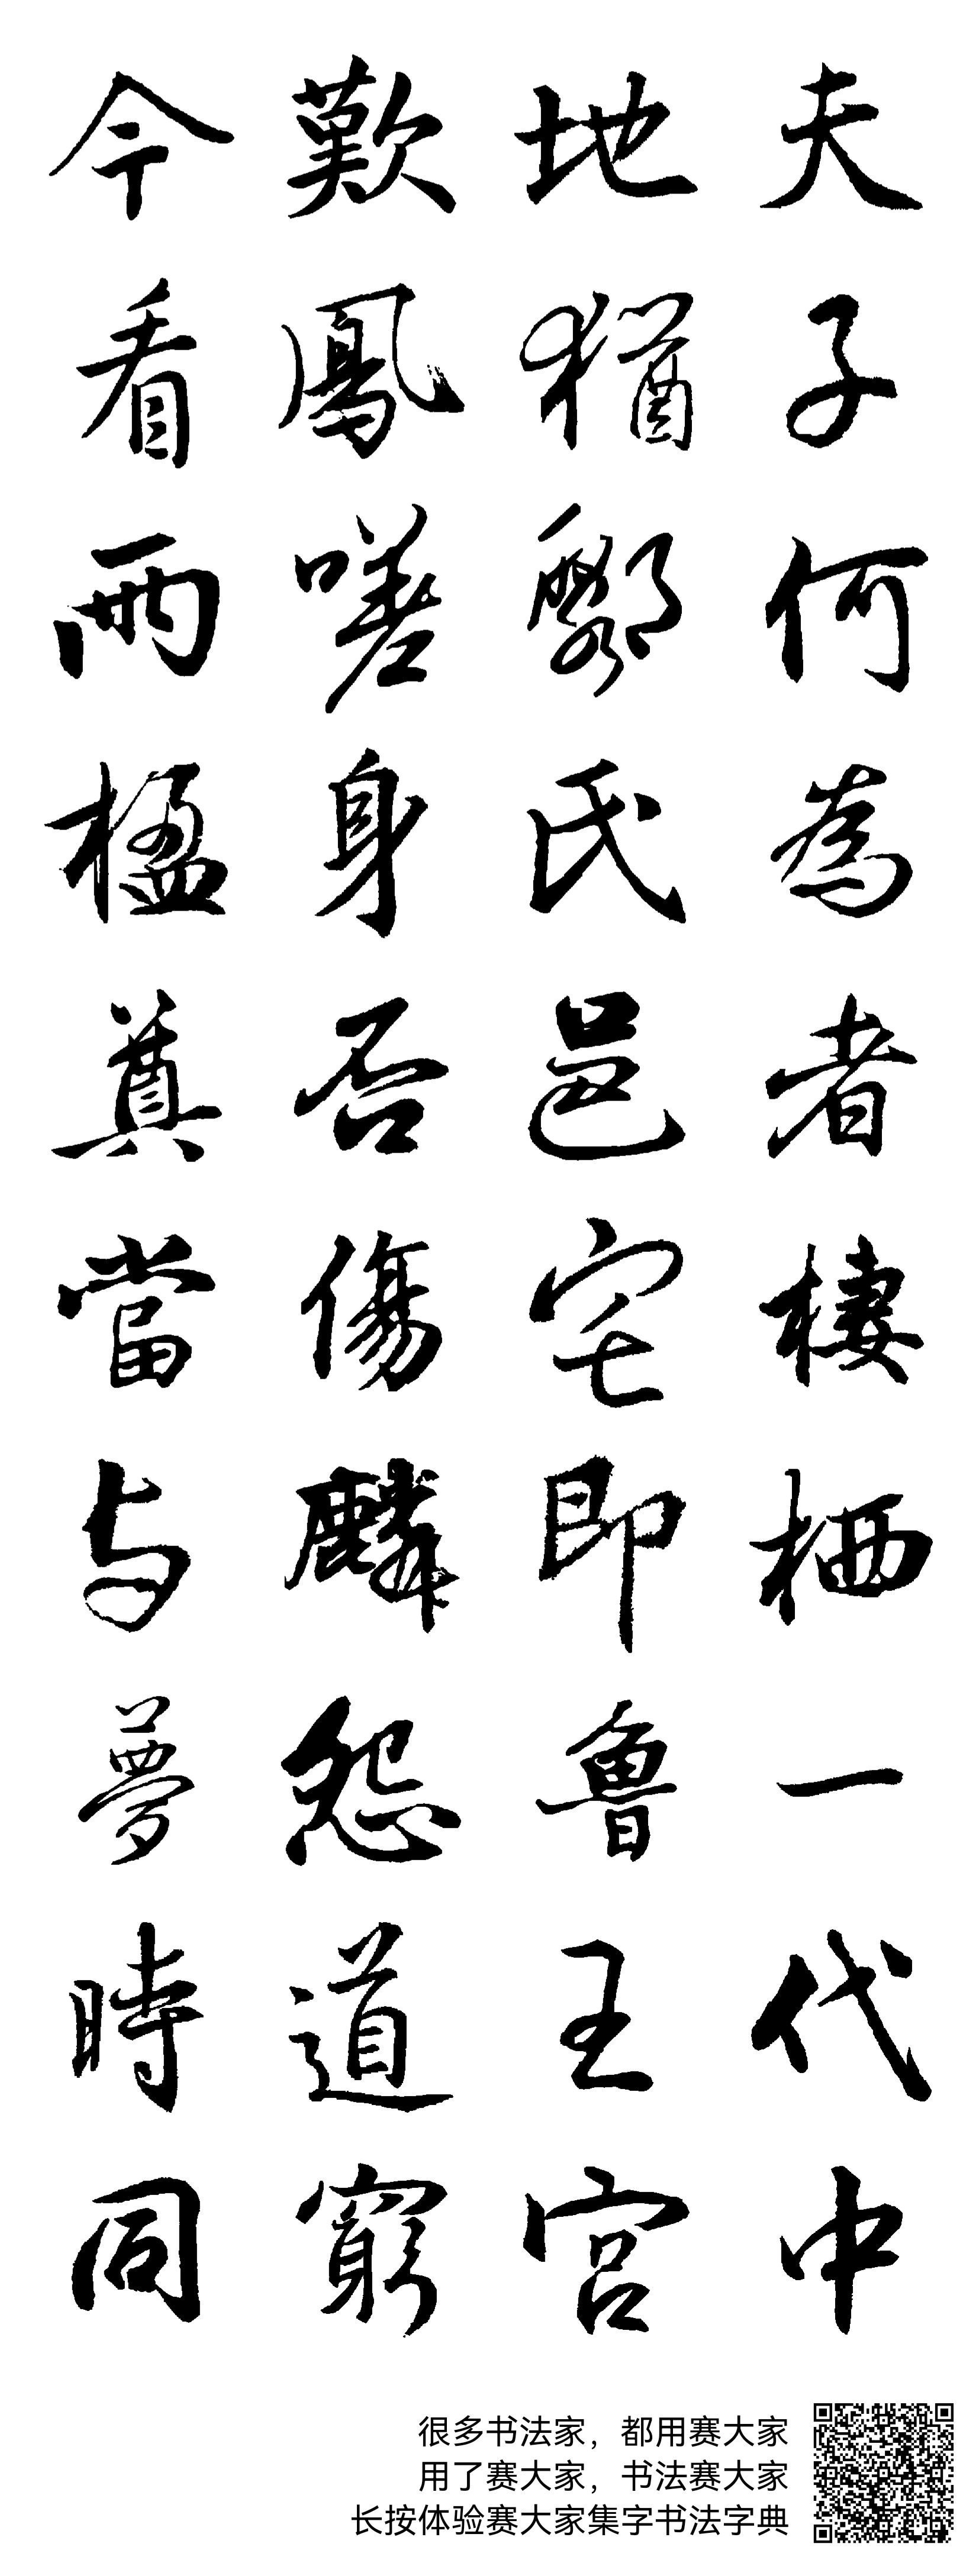 夫子何為者棲栖一代中
地猶鄹氏邑宅即魯王宮
歎鳳嗟身否傷麟怨道窮
今看兩楹奠當与夢時同
很多书法家，都用赛大家
用了赛大家，书法赛大家
长按体验赛大家集字书法字典